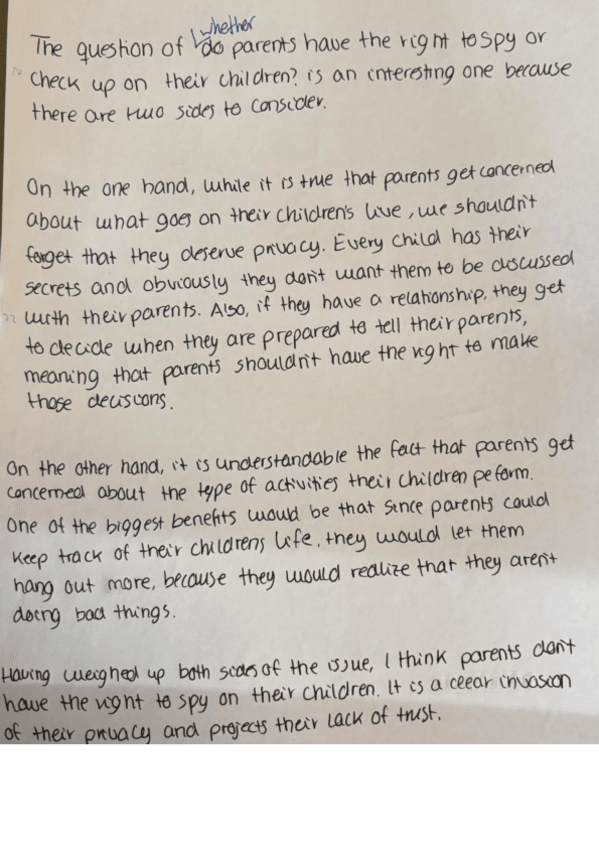 whether
The question of do parents have the right to spy or
check up on their children? is an interesting one because
there are two sides to consider.
On the one hand, while it is true that parents get concerned
about what goes on their children's live, we shouldn't
forget that they deserve privacy. Every child has their
secrets and obviously they don't want them to be discussed
with their parents. Also, if they have a relationship, they get
to decide when they are prepared to tell their parents,
meaning that parents shouldn't have the right to make
those decisions.
On the other hand, it is understandable the fact that parents get
concerned about the type of activities their children peform.
One of the biggest benefits would be that since parents could
keep track of their childrens life, they would let them
hang out more, because they would realize that they aren't
doing bad things.
Having weighed up both sides of the issue, I think parents don't
have the right to spy on their children. It is a clear invasion
of their privacy and projects their lack of trust.